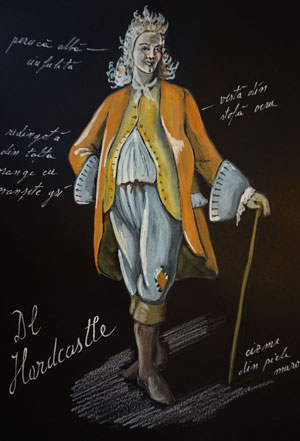 perucă albă
infulită
vestă din
stofă ocru
redingotă
din tafta
orange cu
manșete gri
Dl
Hardcastle
cizme
din piele
maro